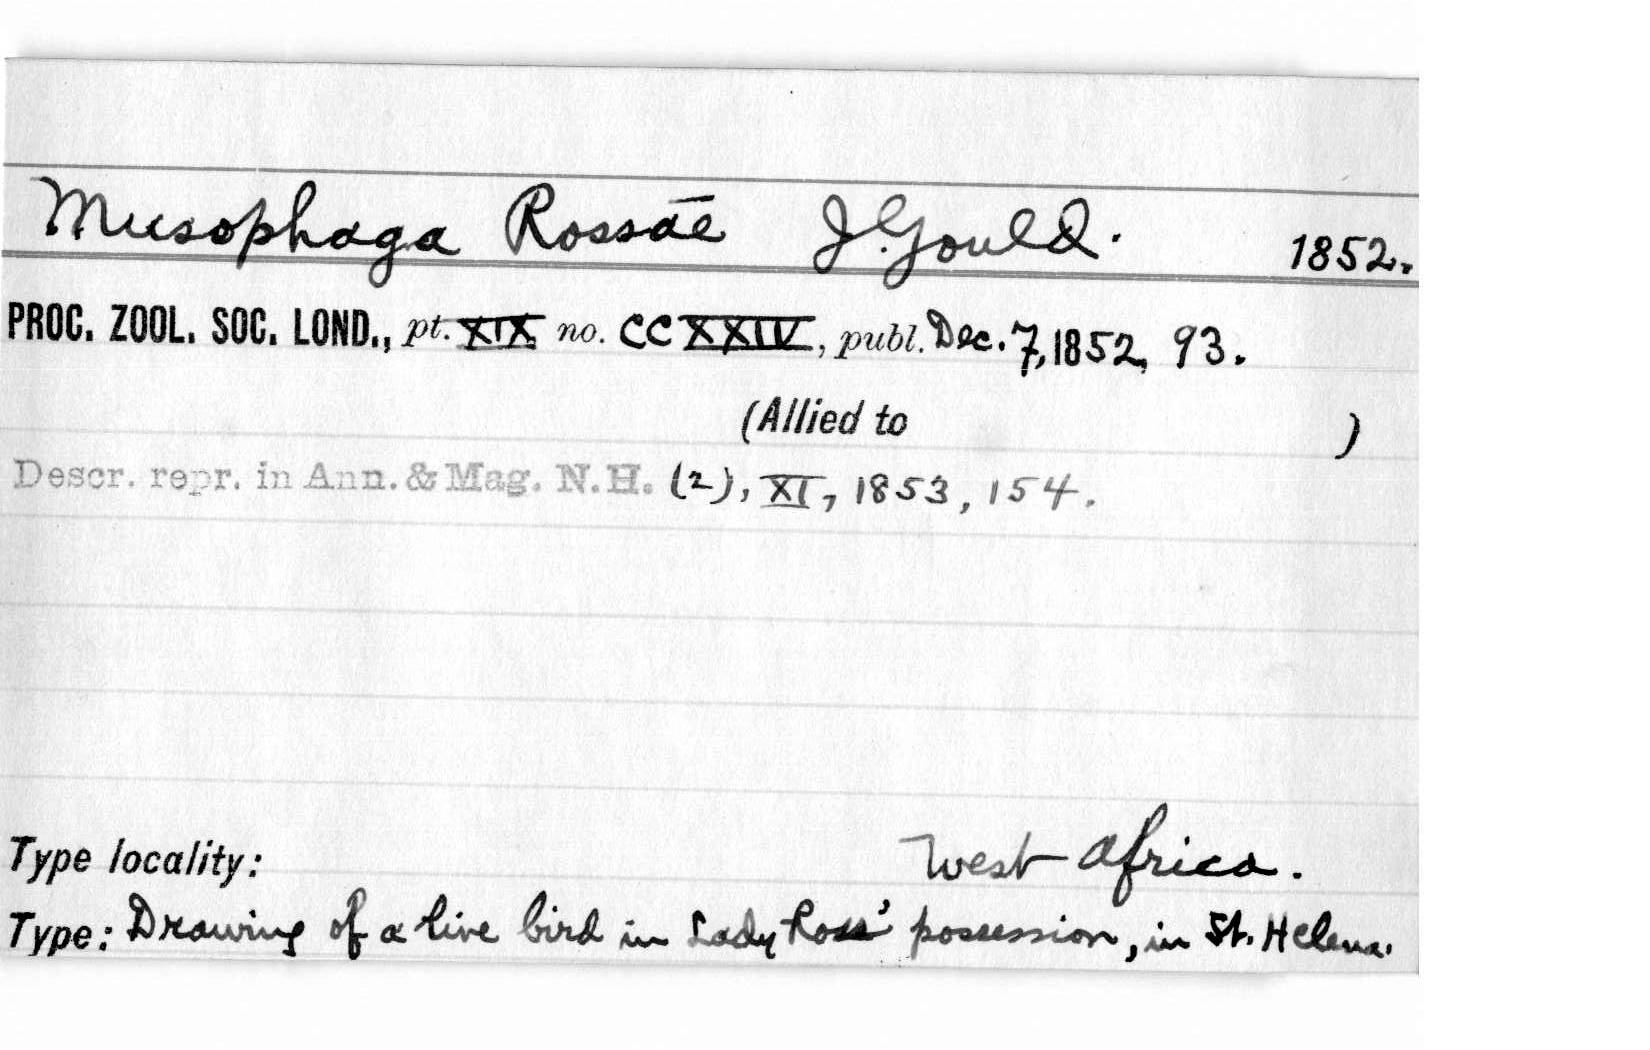 Musophaga Rossae J. Gould. 1852.
PROC. ZOOL. SOC. LOND., pt. XIX no. CCXXXIV, publ. Dec. 7, 1852, 93.
(Allied to )
Descr. repr. in Ann. & Mag. N.H. (2), XI, 1853, 154.
Type locality: West Africa.
Type: Drawing of a live bird in Lady Ross' possession, in St. Helena.